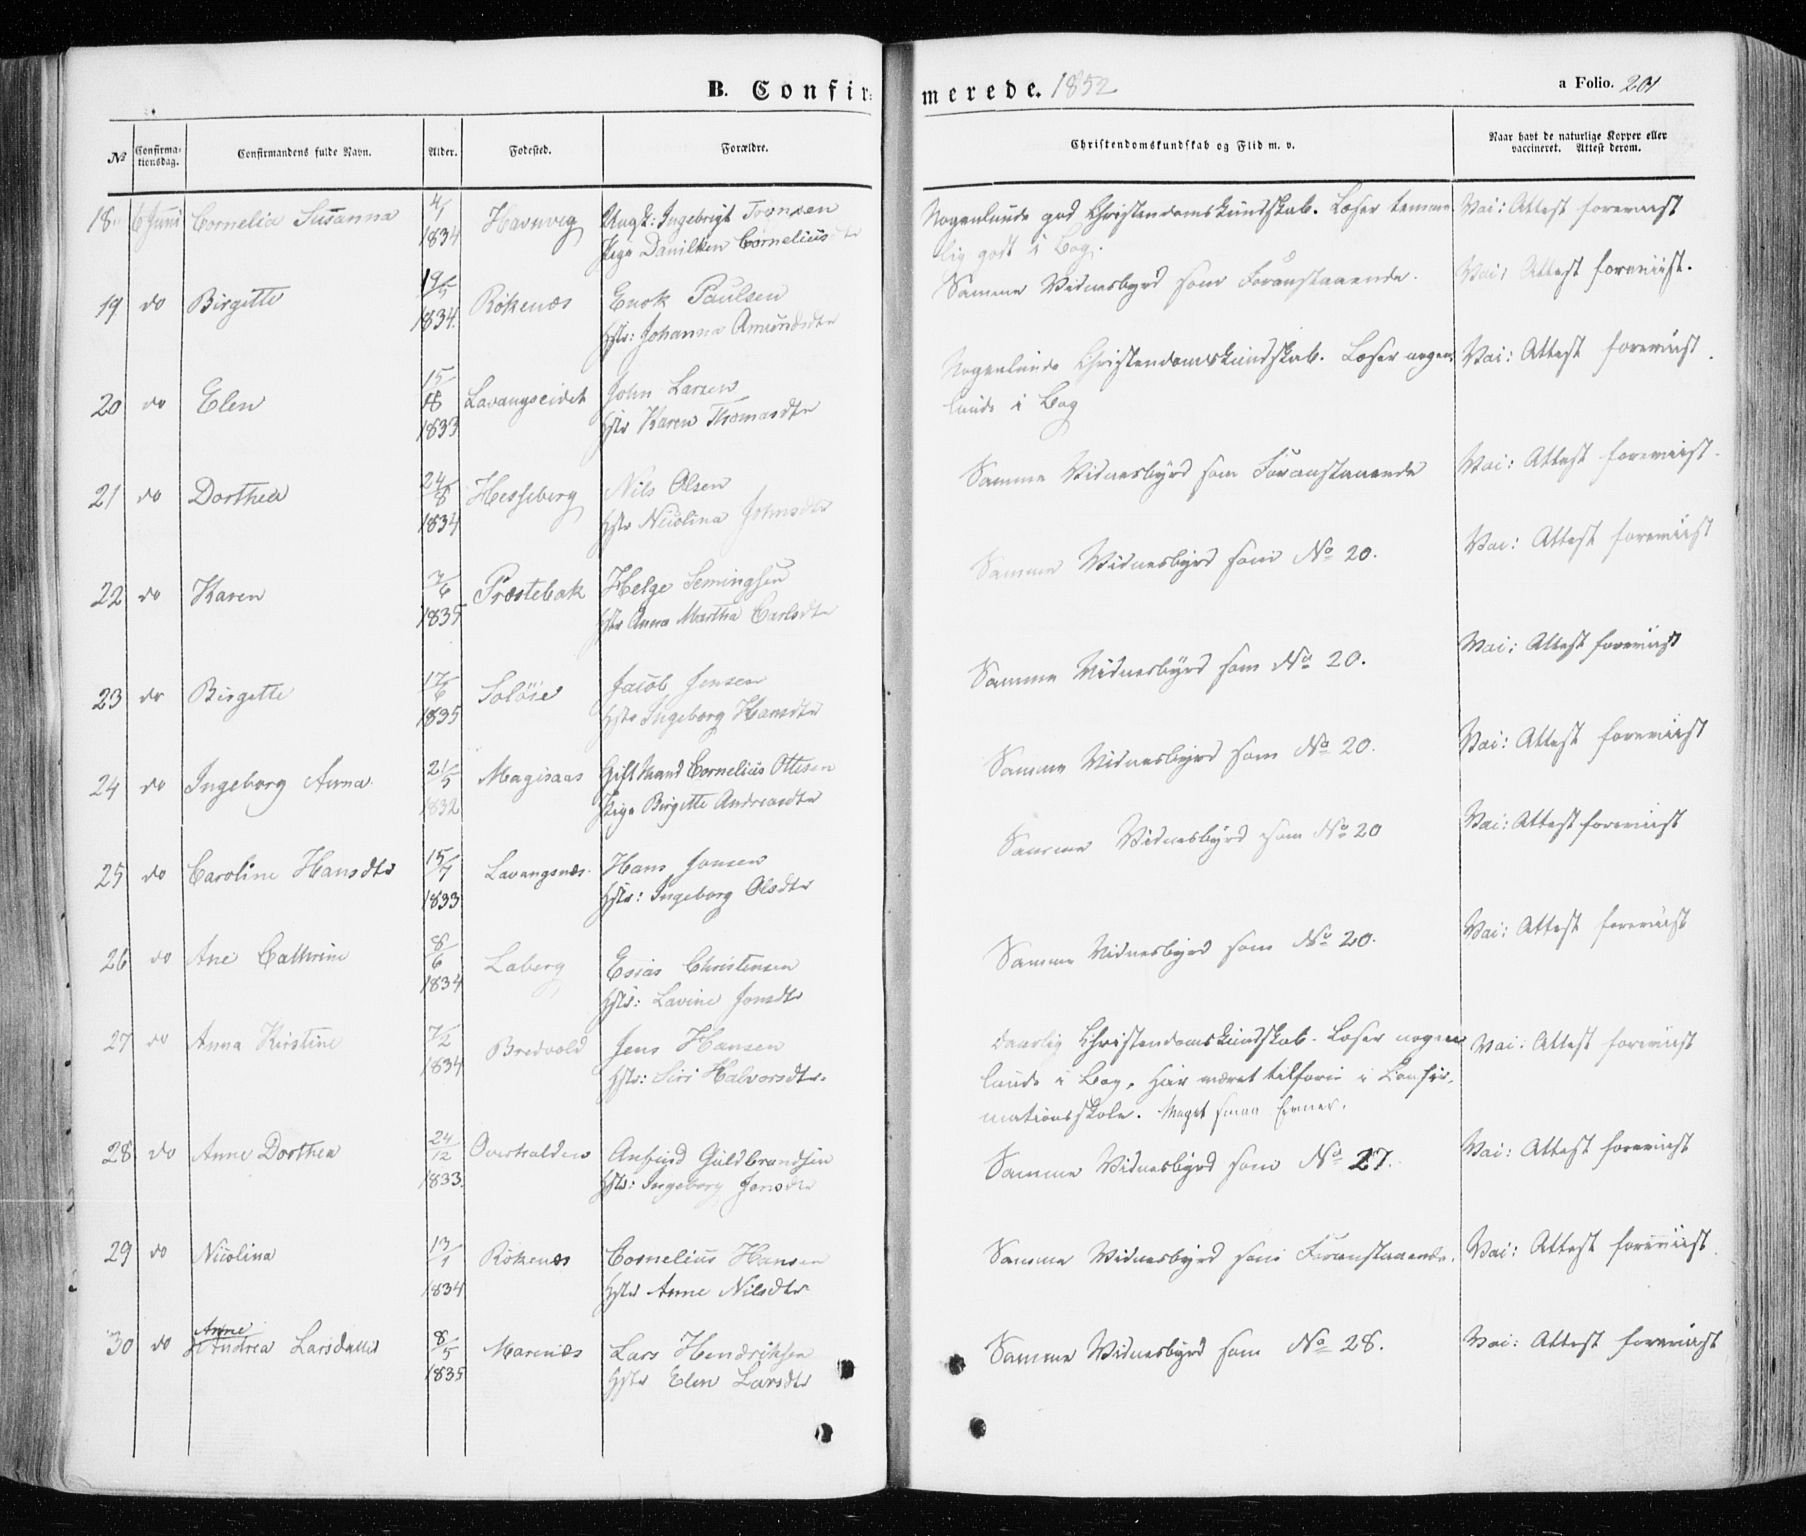 B. Confir-
merede. 1852
a Folio. 201
No
Confirma-
tionsdag.
Confirmandens fulde Navn.
Alder.
Fødested.
Forældre.
Christendomskundskab og Flid m. v.
Naar havt de naturlige Kopper eller
vaccineret. Attest derom.
18 6 Juni Cornelia Susanna 4/1 1834 Havnvig Ungk: Ingebrigt Tønsen
Pige Danilken Corneliusdtr
Nogenlunde god Christendomskundskab. Læser temme-
lig godt i Bog.
Vai: Attest foreviist
19 do Birgitte 19/5 1834. Rökenæs Enok Paulsen
Hstr: Johanna Amundsdtr
Samme Vidnesbyrd som Foranstaaende.
Vai: Attest foreviist.
20 do Elen 15/18 1833 Lavangseidet John Larsen
Hstr Karen Thomasdtr
Nogenlunde Christendomskundskab. Læser nogen-
lunde i Bog
Vai: Attest foreviist.
21 do Dorthea 24/8 1834 Hesseberg Nils Olsen
Hstr Nicolina Johnsdtr
Samme Vidnesbyrd som Foranstaaende
Vai: Attest foreviist.
22 do Karen 3/6 1835 Præstebak Helge Semingsen
Hstr Anna Martha Carlsdtr
Samme Vidnesbyrd som No 20.
Vai: Attest foreviist
23 do Birgitte 17/6 1835 Soløie Jacob Jensen
Hstr Ingeborg Hansdtr
Samme Vidnesbyrd som No 20.
Vai: Attest foreviist
24 do Ingeborg Anna 21/5 1832 Magisaas Gift Mand Cornelius Ottesen
Pige Birgitte Andreasdtr
Samme Vidnesbyrd som No 20.
Vai: Attest foreviist
25 do Caroline Hansdtr 15/7 1833 Lavangsnæs. Hans Jonsen
Hstr: Ingeborg Olsdtr
Samme Vidnesbyrd som No 20
Vai: Attest foreviist
26 do Ane Cathrine 8/6 1834 Laberg Esias Christensen
Hstr: Lavine Jonsdtr
Samme Vidnesbyrd som No 20.
Vai: Attest foreviist
27 do Anna Kirstine 7/2 1834 Bredvold Jens Hansen
Hstr: Siri Halvorsdtr.
daarlig Christendomskundskab. Læser nogen-
lunde i Bog. Har været tilforn i Confir-
mationsskole. Meget smaa Evner.
Vai: Attest foreviist
28 do Anne Dorthea 24/12 1833. Overhalden Anfind Guldbrandsen
Hstr: Ingeborg Jonsdtr
Samme Vidnesbyrd som No 27.
Vai: Attest foreviist
29 do Nicolina 13/1 1834 Rökenæs Cornelius Hansen
Hstr Anne Nilsdtr
Samme Vidnesbyrd som Foranstaaende.
Vai: Attest foreviist.
30 do Anne
Andrea Larsdatter 8/5 1835 Marenæs Lars Hendriksen
Hstr Elen Larsdtr
Samme Vidnesbyrd som No 28.
Vai: Attest foreviist